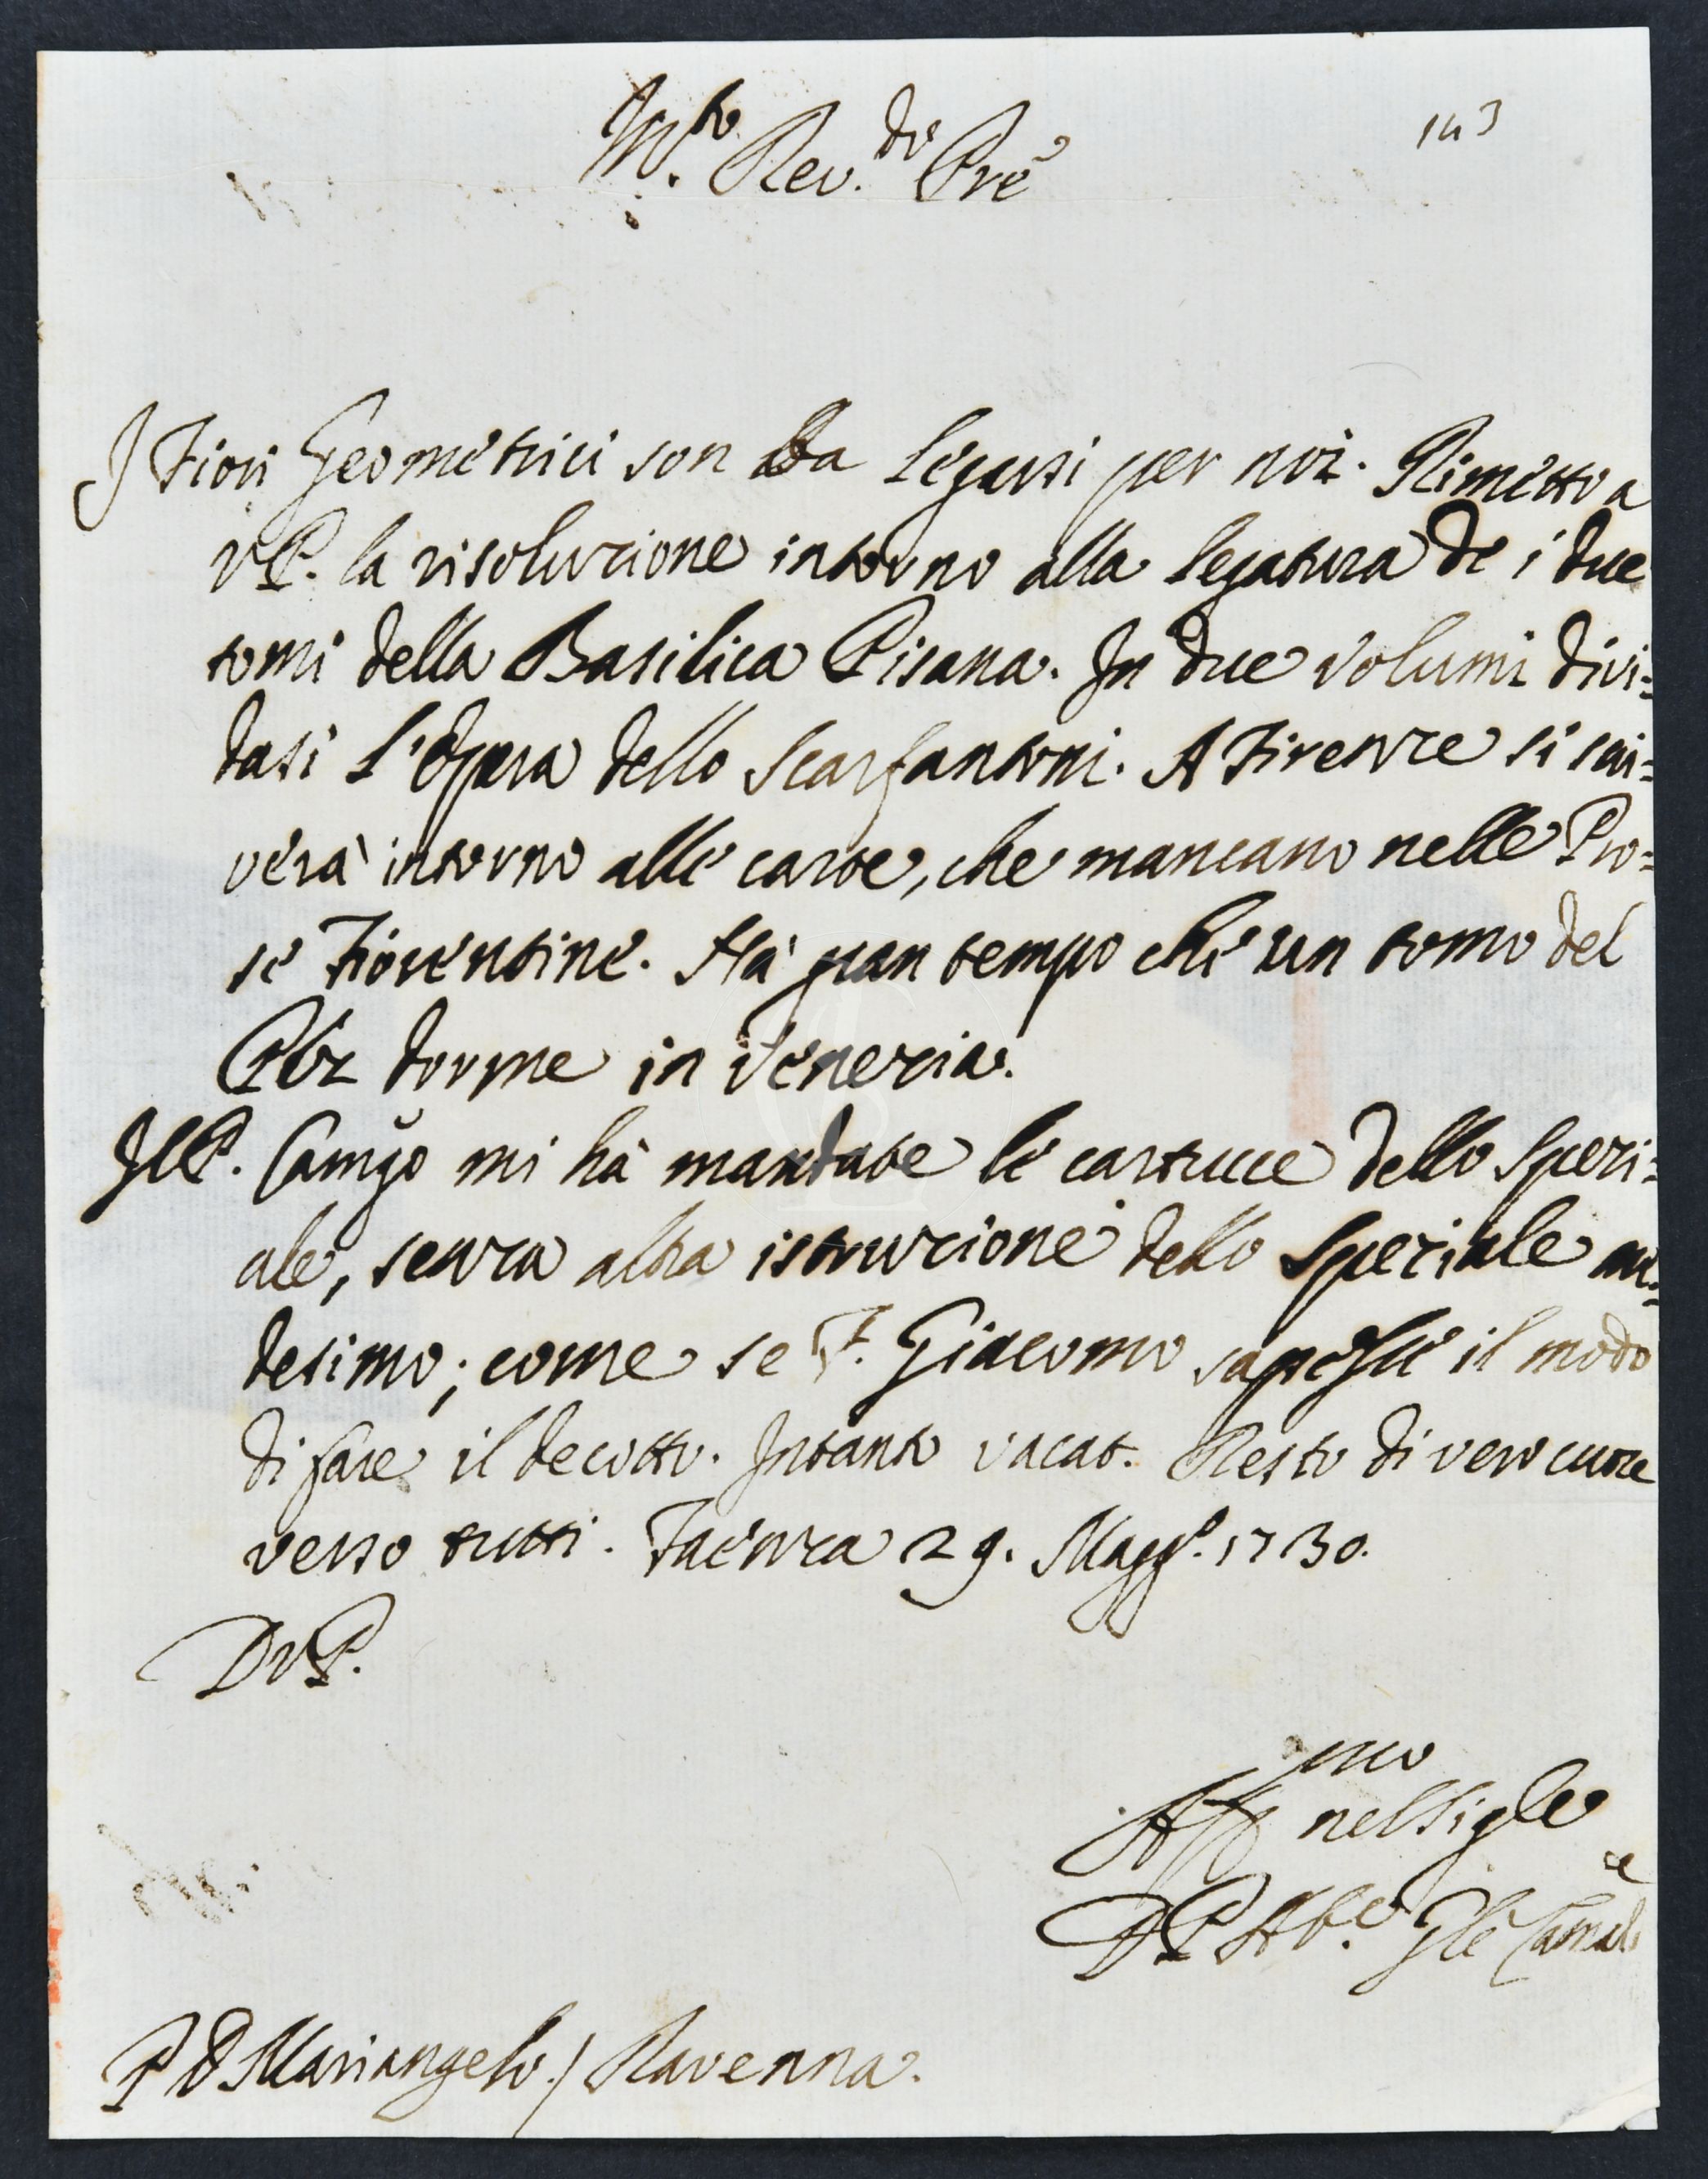 M.to Rev.do Pre
143
I Fiori Geometrici son da legarsi per noi. Rimetto a
VP. la risoluzione intorno alla legatura de i due
tomi della Basilica Pisana. In due volumi divi=
dasi l'Opera dello Scarfantoni. A Firenze si scri=
verà intorno alle carte, che mancano nelle Pro=
se Fiorentine. Hà gran tempo che un tomo del
dorme in Venezia.
Il P. Camp̃o mi hà mandate le cartucce dello Speri=
ale, senza altra istruzione dello Speziale me=
desimo; come se F. Giacomo sapesse il modo
di fare il decotto. Intanto vacat. Resto di vero cuore
verso tutti. Faenza 29. Magg.o 1730.
DVP.
Aff.mo nel Sig.le
D P Ab.e Gle Camal.e
P D Mariangelo / Ravenna.